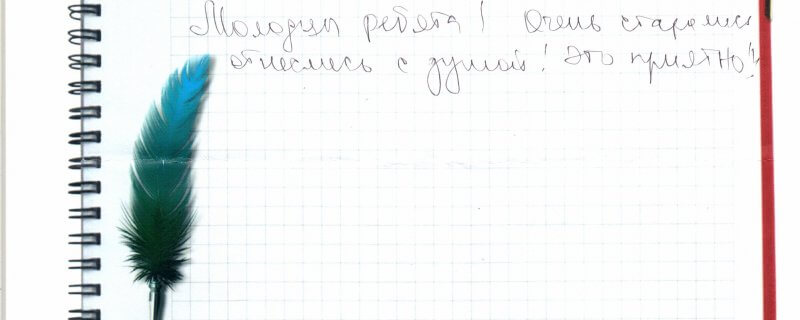 Молодцы ребята! Очень старались
отнеслись с душой! Это приятно!!